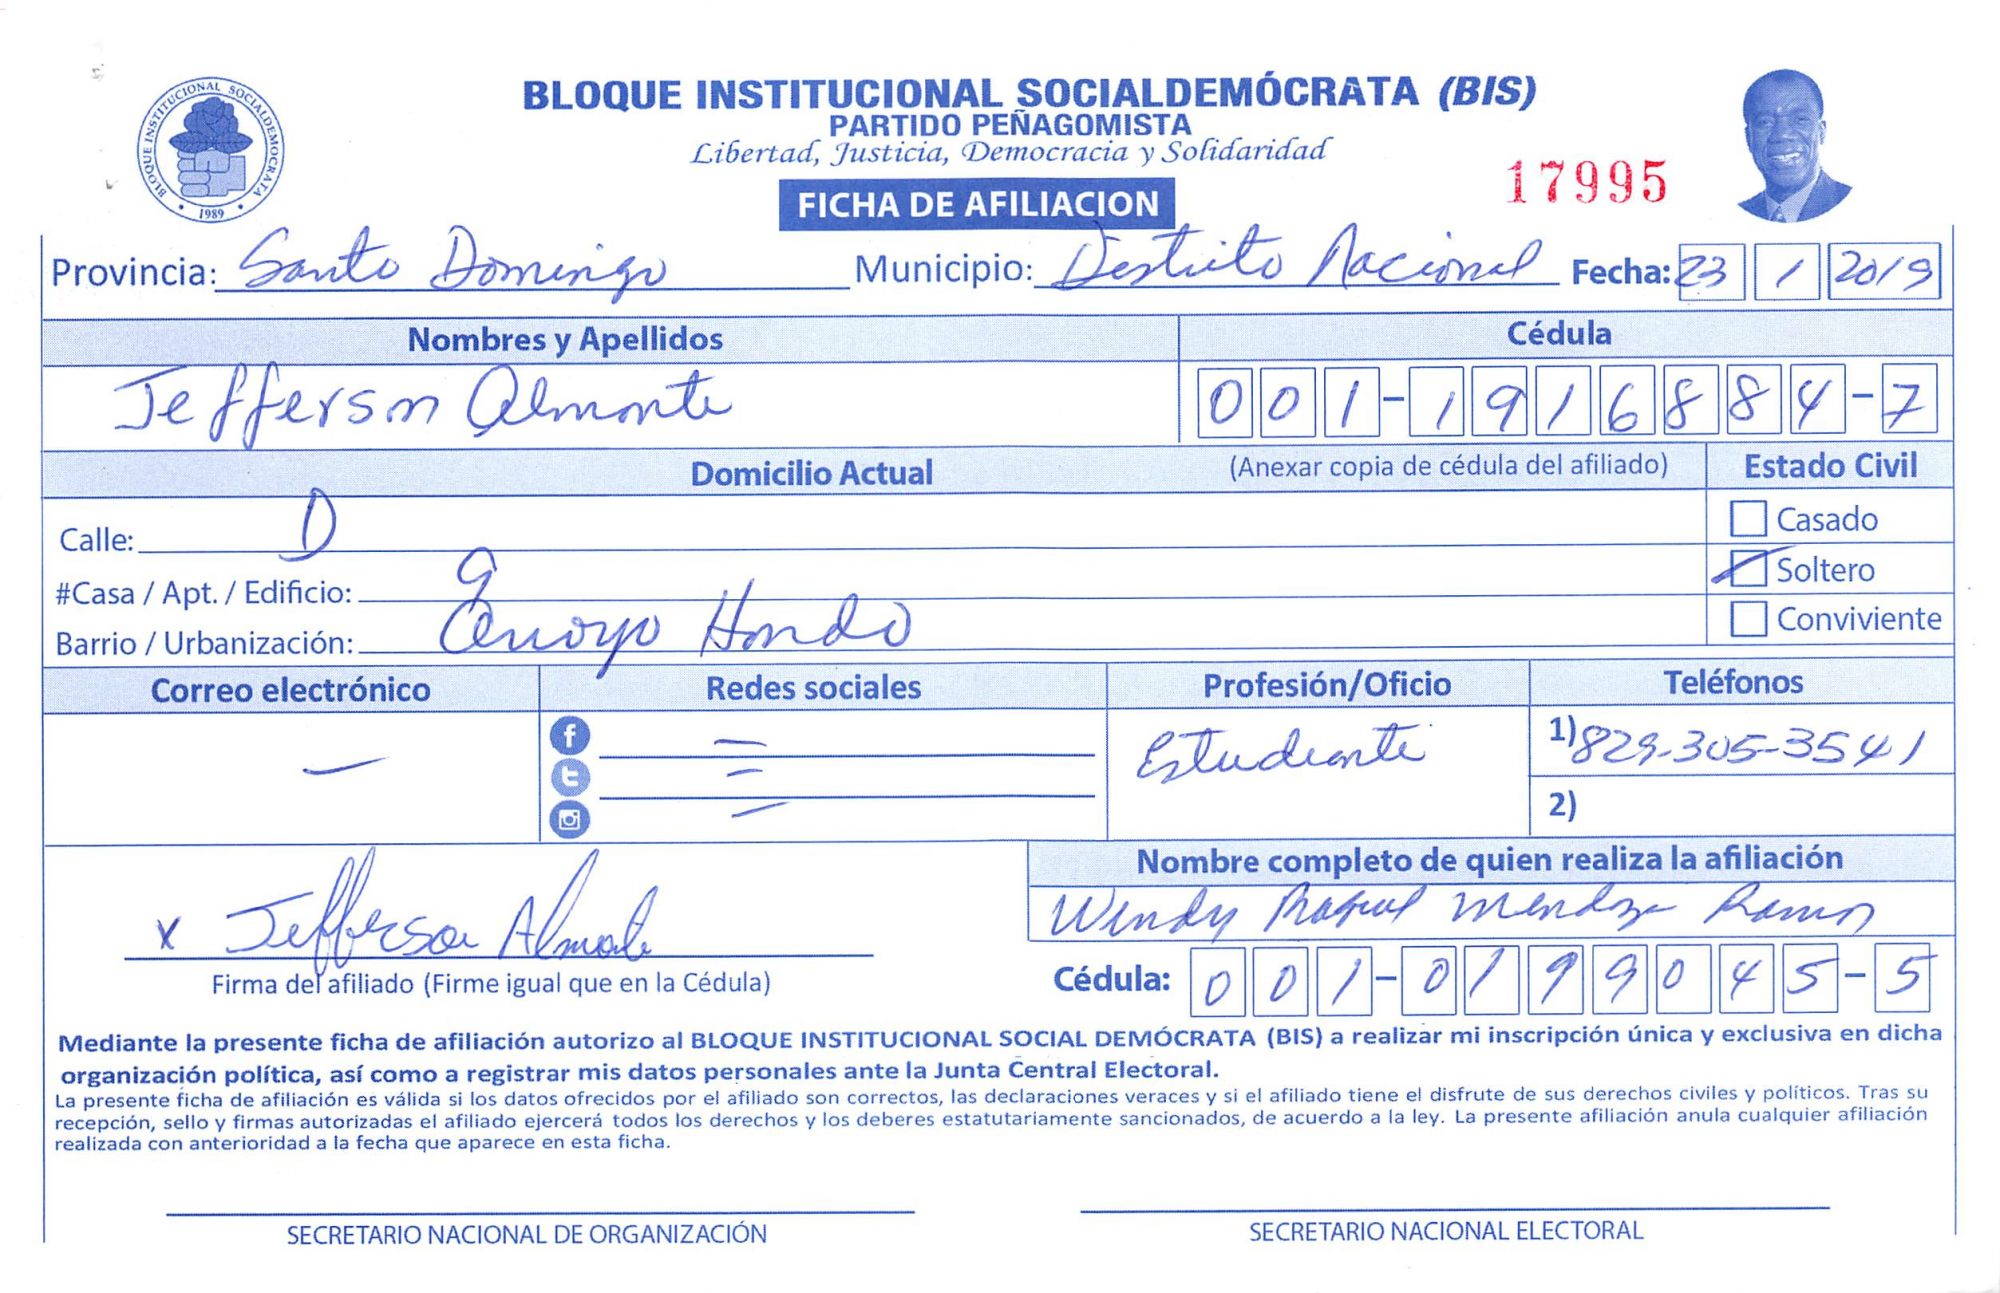 BLOQUE INSTITUCIONAL SOCIALDEMÓCRATA (BIS)
PARTIDO PEÑAGOMISTA
Libertad, Justicia, Democracia y Solidaridad
BLOQUE INSTITUCIONAL SOCIALDEMOCRATA
1989
17995
FICHA DE AFILIACION
Provincia: Santo Domingo Municipio: Distrito Nacional Fecha: 23 1 2019
Nombres y Apellidos Cédula
Jefferson Almonte 001-1916884-7
Domicilio Actual (Anexar copia de cédula del afiliado) Estado Civil
Calle: D Casado
#Casa / Apt. / Edificio: 9 Soltero
Barrio / Urbanización: Arroyo Hondo Conviviente
Correo electrónico Redes sociales Profesión/Oficio Teléfonos
— — Estudiante 1) 829-305-3541
—
— 2)
Nombre completo de quien realiza la afiliación
x Jefferson Almonte Windy Rafael Mendoza Ramos
Firma del afiliado (Firme igual que en la Cédula) Cédula: 001-0199045-5
Mediante la presente ficha de afiliación autorizo al BLOQUE INSTITUCIONAL SOCIAL DEMÓCRATA (BIS) a realizar mi inscripción única y exclusiva en dicha
organización política, así como a registrar mis datos personales ante la Junta Central Electoral.
La presente ficha de afiliación es válida si los datos ofrecidos por el afiliado son correctos, las declaraciones veraces y si el afiliado tiene el disfrute de sus derechos civiles y políticos. Tras su
recepción, sello y firmas autorizadas el afiliado ejercerá todos los derechos y los deberes estatutariamente sancionados, de acuerdo a la ley. La presente afiliación anula cualquier afiliación
realizada con anterioridad a la fecha que aparece en esta ficha.
SECRETARIO NACIONAL DE ORGANIZACIÓN SECRETARIO NACIONAL ELECTORAL